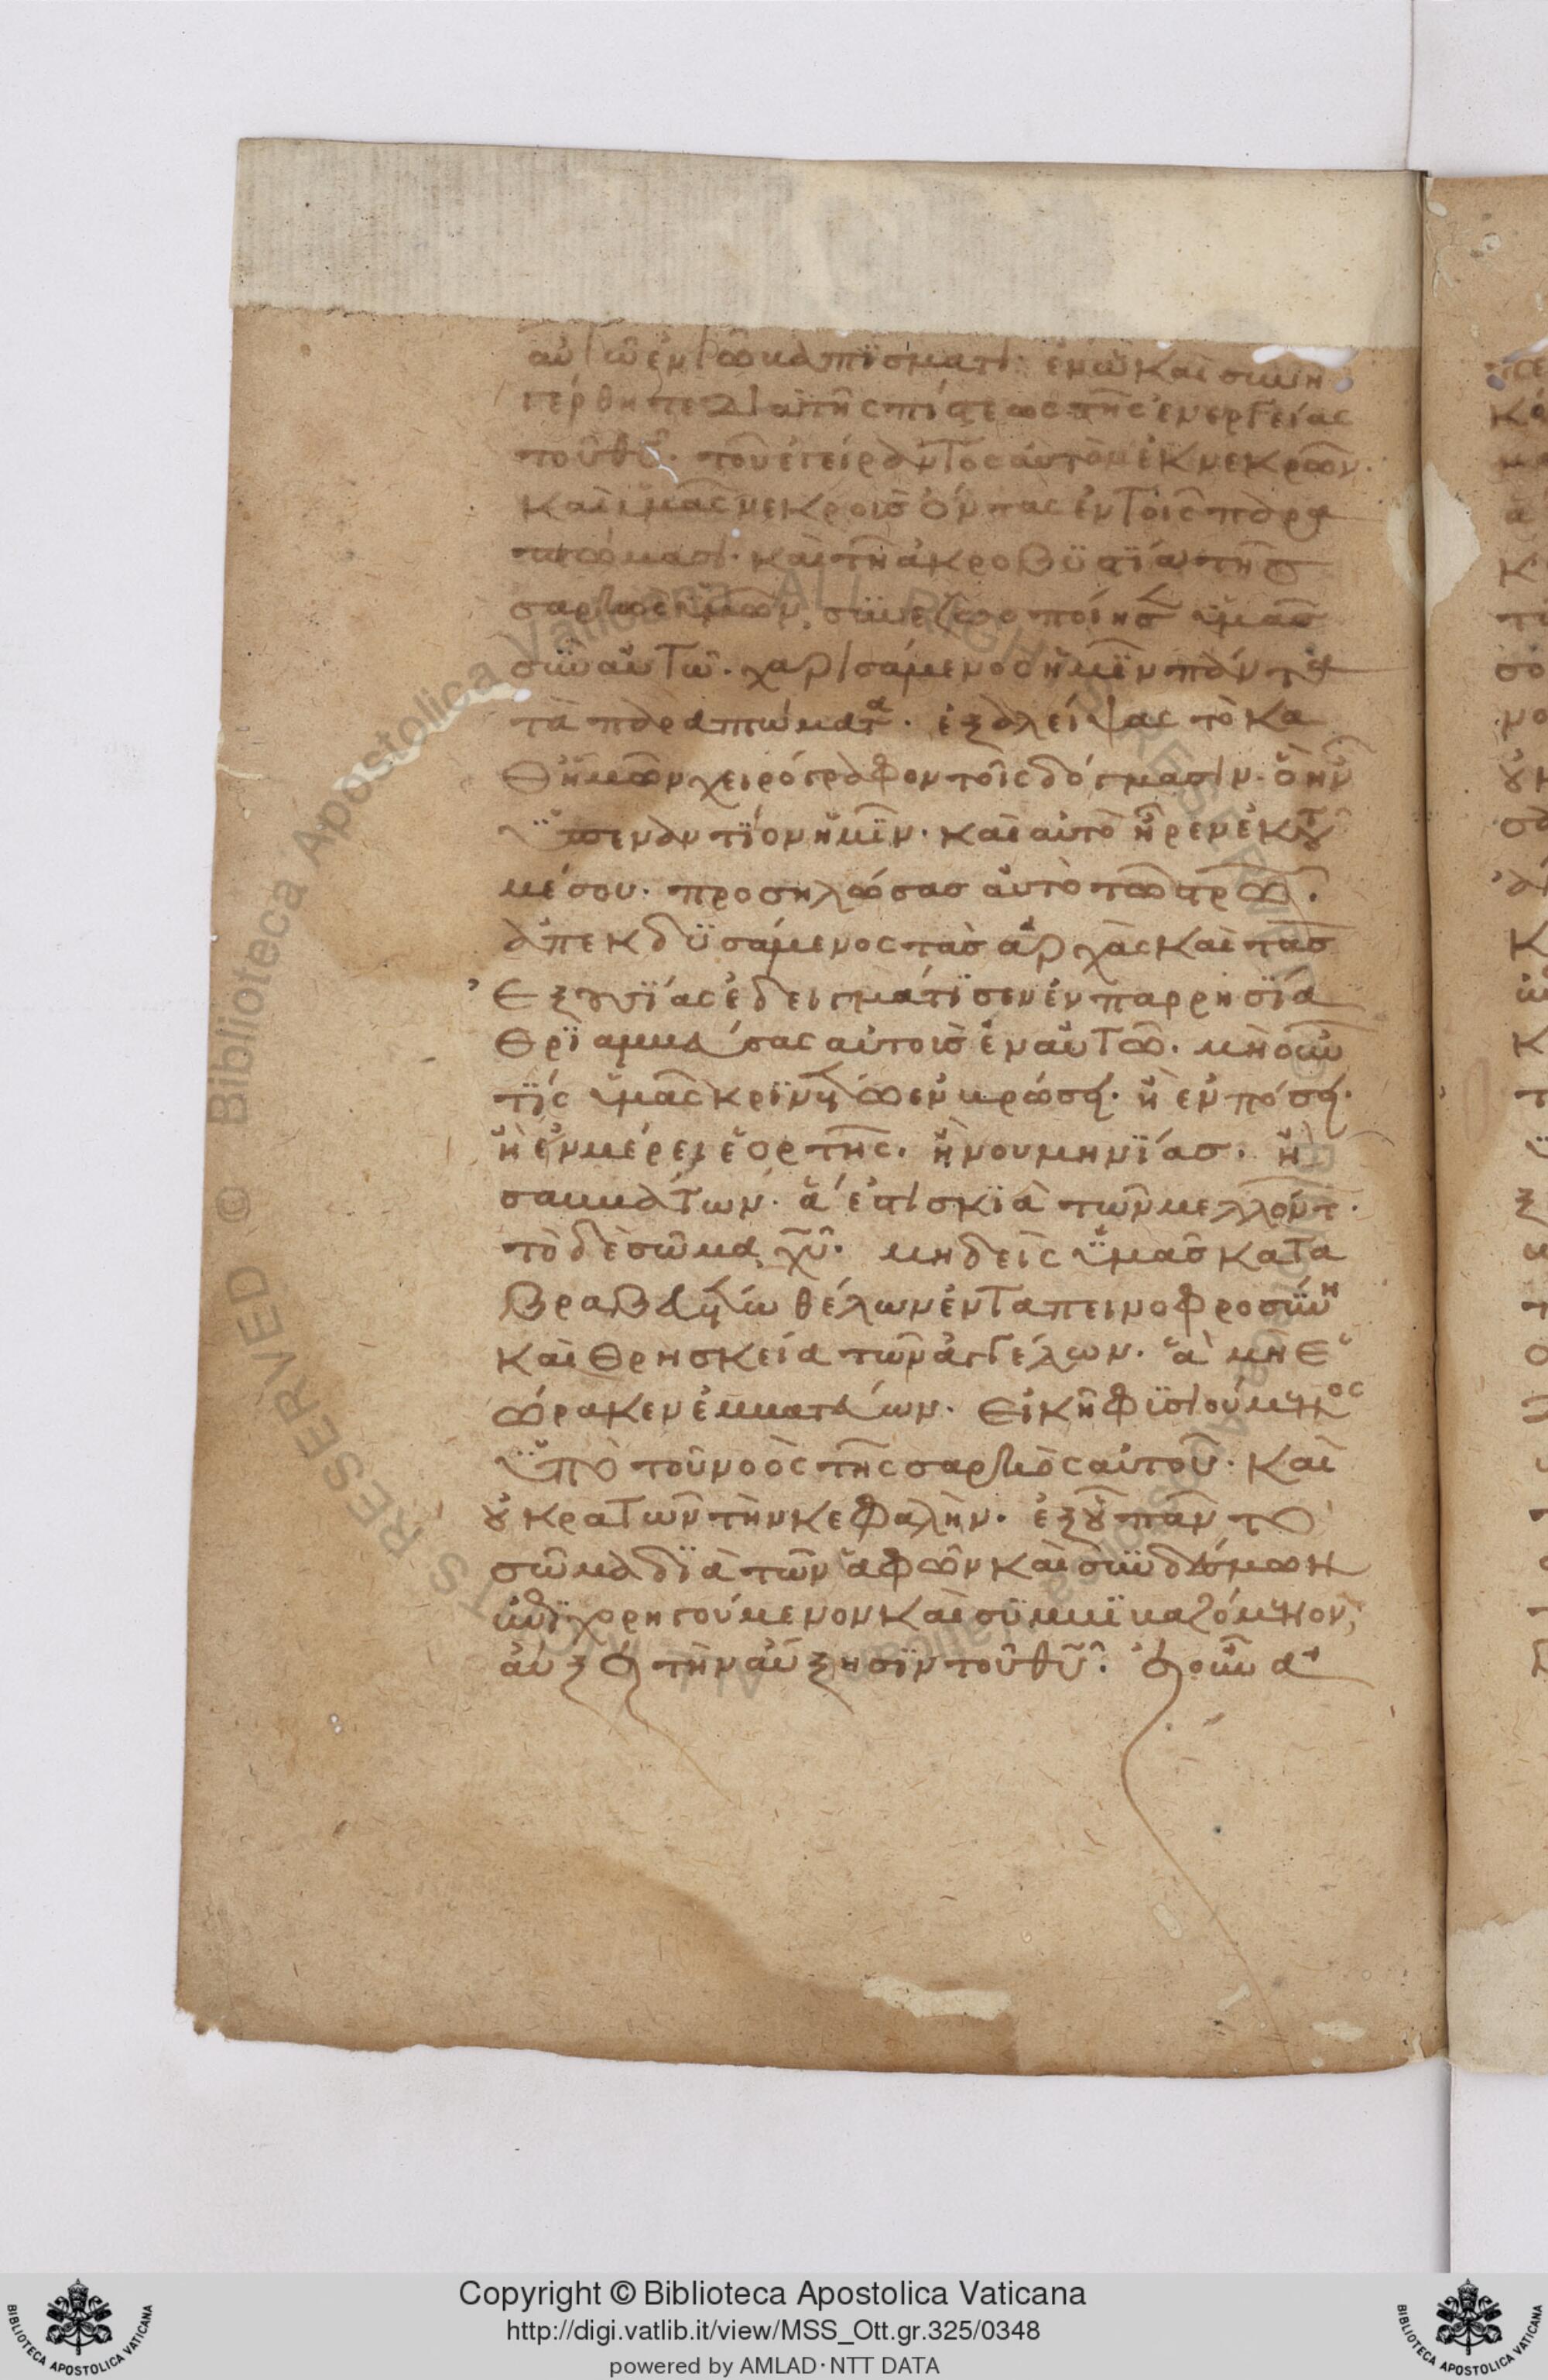 αὐτῶ ἐν τῶ βαπτίσματι· ἐν ὧ καὶ συνη
γέρθητε διὰ τῆς πίστεως τῆς ἐνεργείας
τοῦ θυ̅· τοῦ ἐγείραντος αὐτὸν ἐκ νεκρῶν·
καὶ ὑμᾶς νεκροὺσ ὄντας ἐν τοῖς παρα
πτώμασι· καὶ τῆ ἀκροβυστία τῆσ
σαρκὸς ὑμῶν, συνεζωοποίησε ὑμᾶσ
σὺν αὐτῶ· χαρισάμενοσ ἡμῖν πάντα
τὰ παραπτώματα· ἐξαλείψας τὸ κα
θ ἡμῶν χειρόγραφον τοῖς δόγμασιν· ὃ ἦν
ὑπεναντίον ἡμῖν· καὶ αὐτὸ ἦρεν ἐκ τοῦ
μέσου· προσηλώσασ αὐτὸ τῶ στρω̅·
ἀπεκδυσάμενος τὰσ ἀρχὰς καὶ τὰσ
ἐξουσίας ἐδειγμάτισεν ἐν παρρησία
θριαμβεύσας αὐτοὺσ ἐν αὐτῶ· μὴ οὖν
τίς ὑμᾶς κρινέτω ἐν βρώσει· ἢ ἐν πόσει·
ἢ ἐν μέρει ἑορτῆς· ἢ νουμηνίασ· ἢ
σαββάτων· ἅ ἐστι σκιὰ τῶν μελλόντ·
τὸ δὲ σῶμα χυ̅· μηδεὶς ὑμᾶσ κατα
βραβευέτω θέλων ἐν ταπεινοφροσύνη
καὶ θρησκεία τῶν ἀγγέλων· ἃ μὴ ἑ
ώρακεν ἐμβατεύων· εἰκῆ φυσιούμενος
ὑπὸ τοῦ νοὸς τῆς σαρκὸς αὐτοῦ· καὶ
οὐ κρατῶν τὴν κεφαλὴν· ἐξ οὗ πᾶν τὸ
σῶμα διὰ τῶν ἁφῶν καὶ συνδέσμων
ἐπιχορηγούμενον καὶ συμβιβαζόμενον,
αὔξει τὴν αὔξησιν τοῦ θυ̅· εἰ οὖν ἀ
Copyright © Biblioteca Apostolica Vaticana
http://digi.vatlib.it/view/MSS_Ott.gr.325/0348
powered by AMLAD·NTT DATA